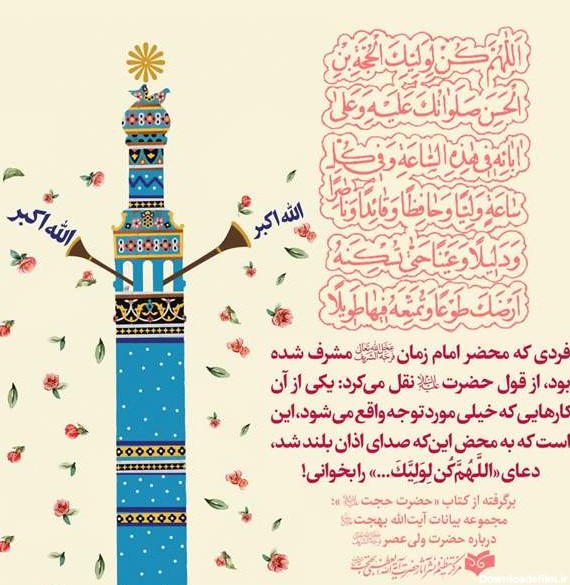 اَللّهُمَّ كُنْ لِوَلِيِّكَ الْحُجَّةِ بْنِ
الْحَسَنِ صَلَواتُكَ عَلَيْهِ وَعَلى
ابائِهِ في هذِهِ السّاعَةِ وَفي كُلِّ
ساعَةٍ وَلِيّاً وَحافِظاً وَقائِداً وَناصِراً
وَدَليلاً وَعَيْناً حَتّى تُسْكِنَهُ
اَرْضَكَ طَوْعاً وَتُمَتِّعَهُ فيها طَويلاً
الله اکبر
الله اکبر
فردی که محضر امام زمان عجل‌الله‌تعالی فرجه‌الشریف مشرف شده
بود، از قول حضرت علیه‌السلام نقل می‌کرد: یکی از آن
کارهایی که خیلی مورد توجه واقع می‌شود، این
است که به محض این‌که صدای اذان بلند شد،
دعای «اللَّهُمَّ کُن لِوَلِیِّکَ...» را بخوانی!
برگرفته از کتاب «حضرت حجت علیه‌السلام»؛
مجموعه بیانات آیت‌الله بهجت
درباره حضرت ولی عصر
Downloadefilm.ir